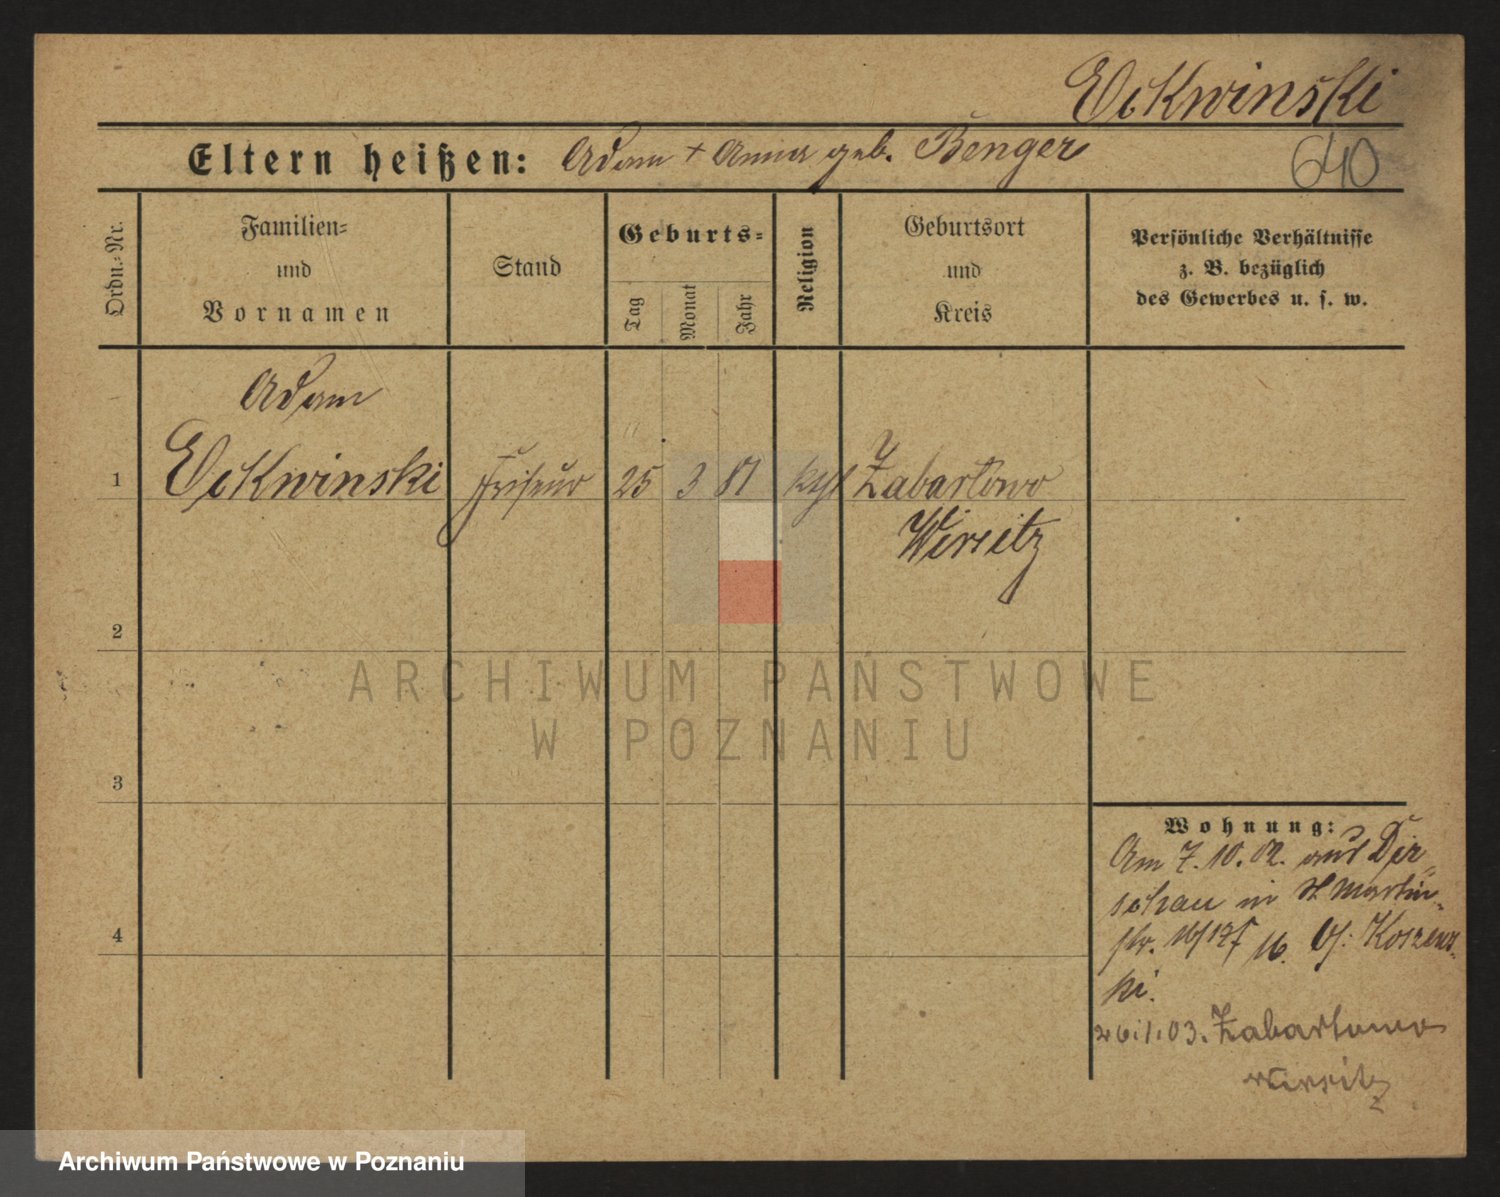 Eckwinski
Eltern heißen: Adam + Anna geb. Benger
640
Ordn.-Nr.
Familien-
und
Vornamen
Stand
Geburts-
Tag
Monat
Jahr
Religion
Geburtsort
und
Kreis
Persönliche Verhältnisse
z. B. bezüglich
des Gewerbes u. s. w.
Adam
1 Eckwinski Friseur 25 3 81 kath Zabartowo
Wirsitz
2
3
4
ARCHIWUM PAŃSTWOWE
W POZNANIU
Wohnung:
Am 7. 10. 02. aus Dir-
schau in St Martin-
str. 16/17 b.
ki.
26.1.03. Zabartowo
Wirsitz
Archiwum Państwowe w Poznaniu